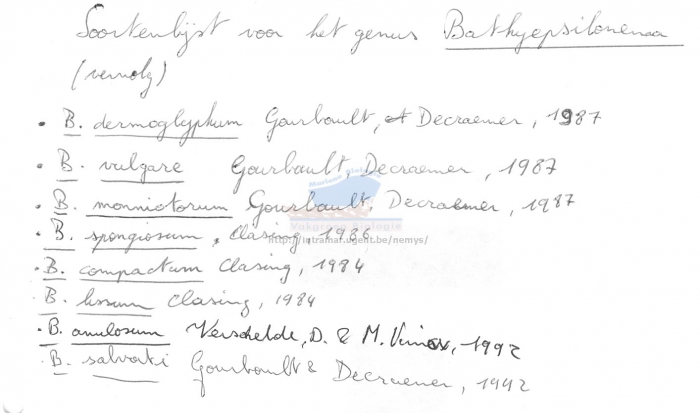 Soortenlijst voor het genus Bathyepsilonema
(vervolg)
• B. dermoglyphum Gourbault, & Decraemer, 1987
• B. vulgare Gourbault, Decraemer, 1987
• B. monniotorum Gourbault, Decraemer, 1987
• B. spongiosum, Clasing, 1986
http://intramar.ugent.be/nemys/
• B. compactum Clasing, 1984
• B. lissum Clasing, 1984
• B. anulosum Verschelde, D. & M. Vincx, 1992
• B. salvati Gourbault & Decraemer, 1992